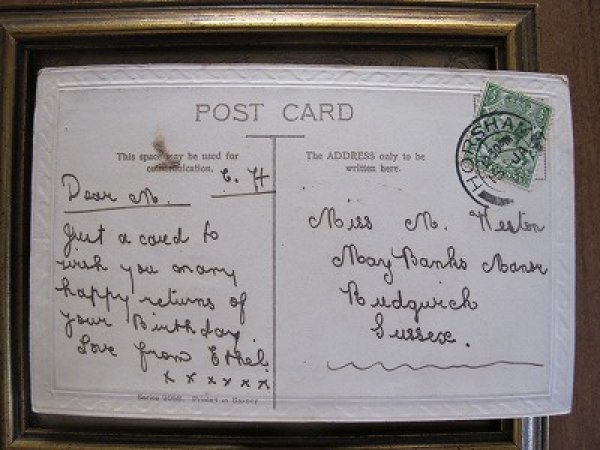 POST CARD
This space may be used for
communication.
The ADDRESS only to be
written here.
HORSHAM
C. H
Dear M.
Just a card to
wish you many
happy returns of
your Birthday.
Love from Ethel.
x x x x x x
Miss M. Weston
May Banks Manor
Rudgwick
Sussex.
Series 2068. Printed in Saxony